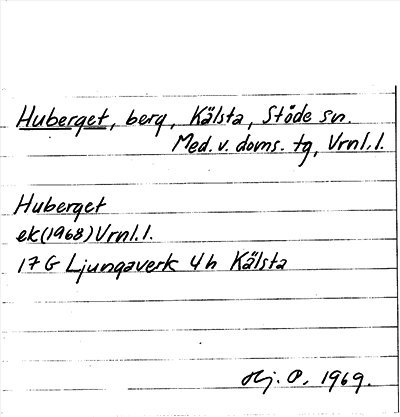 Huberget, berg, Kälsta, Stöde sn.
Med. v. doms. tg, Vrnl.l.
Huberget
ek(1968)Vrnl.l.
17 G Ljungaverk 4h Kälsta
Hj. O. 1969.